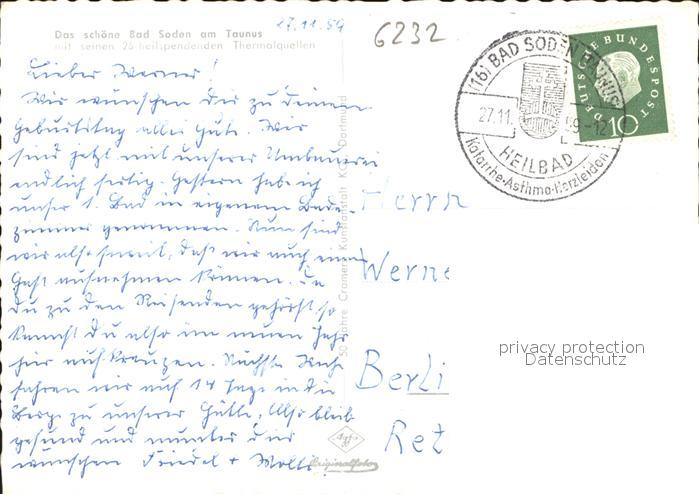 17.11.59
6232
Das schöne Bad Soden am Taunus
mit seinen 26 heilspendenden Thermalquellen
(16) BAD SODEN TAUNUS
27.11. 59-12
L
HEILBAD
Katarrhe-Asthma-Herzleiden
DEUTSCHE BUNDESPOST
10
Lieber Werner!
Wir wünschen dir zu deinem
Geburtstag alles Gute. Wir
sind jetzt mit unserer Umbauerei
endlich fertig. Gestern habe ich
unser 1. Bad in eigenem Bade-
zimmer genommen. Nun sind
wir also soweit, daß wir auch einen
Gast aufnehmen können. Da
Du zu den Reisenden gehörst, so
kannst Du also im neuen Jahr
hier aufkreuzen. Nächste Woche
fahren wir auf 14 Tage in die
Berge zu unserer Hütte. Also bleib
gesund und munter dies
wünschen Friedel + Wolf
50 Jahre Cramers Kunstanstalt KG, Dortmund
Originalfoto
Herrn
Werne
Berli
privacy protection
Datenschutz